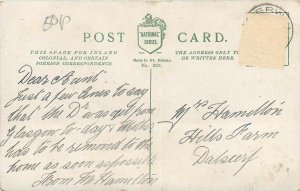 50p
POST CARD.
NATIONAL SERIES
THIS SPACE FOR INLAND
COLONIAL, AND CERTAIN
FOREIGN CORRESPONDENCE
Made in Gt. Britain
THE ADDRESS ONLY TO
BE WRITTEN HERE.
Dear Aunt
Just a few lines to say
that the Dr was up from
Glasgow to-day &
has to be removed to the
home as soon as possible
From Mr Hamilton
Mrs Hamilton
Hills Farm
Dalserf